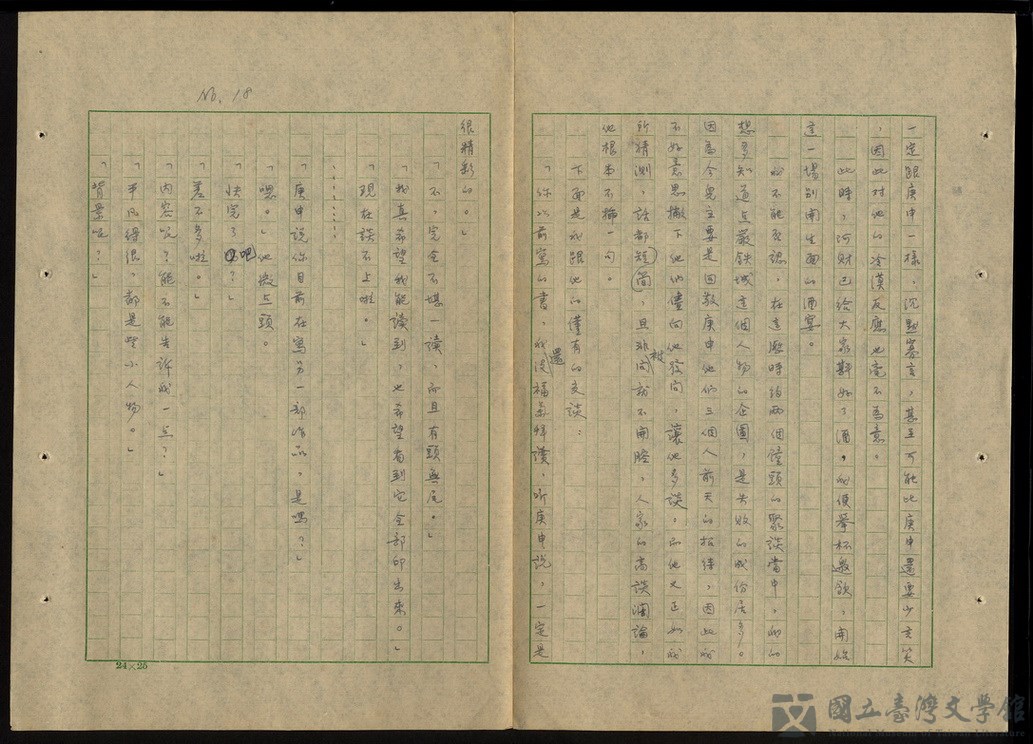 No. 18
一定跟庚申一樣，沉默寡言，甚至可能比庚申還要少言笑
，因此對他的冷漠反應也毫不為意。
此時，河財已給大家斟好了酒，我便舉杯邀飲，開始
這一場別開生面的酒宴。
我不能否認，在這歷時約兩個鐘頭的聚談當中，我的
想多知道点嚴鉄城這個人物的企圖，是失敗的成份居多。
因為今兒主要是回敬庚申他們三個人前天的招待，因此我
不好意思撇下他們儘向他發問，讓他多談，而他又正如我
所猜測，話都短簡，且非問就不開腔，人家的高談濶論，
他根本不插一句。
下面是我跟他的僅有的交談：
「你以前寫的書，我還沒福氣拜讀，听庚申說，一定是
很精彩的。」
「不，完全不堪一讀，而且有頭無尾。」
「我真希望我能讀到，也希望看到它全部印出來。」
「現在談不上啦。」
………
「庚申說你目前在寫另一部作品，是嗎？」
「嗯。」他微点頭。
「快完了吧？」
「差不多啦。」
「內容呢？能不能告訴我一点？」
「平凡得很，都是些小人物。」
「背景呢？」
24×25
國立臺灣文學館
National Museum of Taiwan Literature